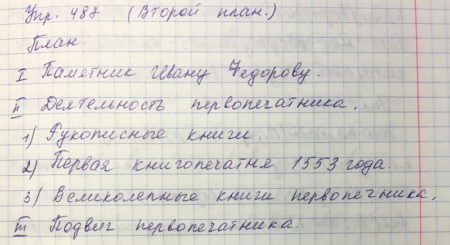 Упр. 487 (Второй план.)
План.
I Памятник Ивану Федорову.
II Деятельность первопечатника.
1) Рукописные книги.
2) Первая книгопечатня 1553 года.
3) Великолепные книги первопечника,
III Подвиг первопечатника.